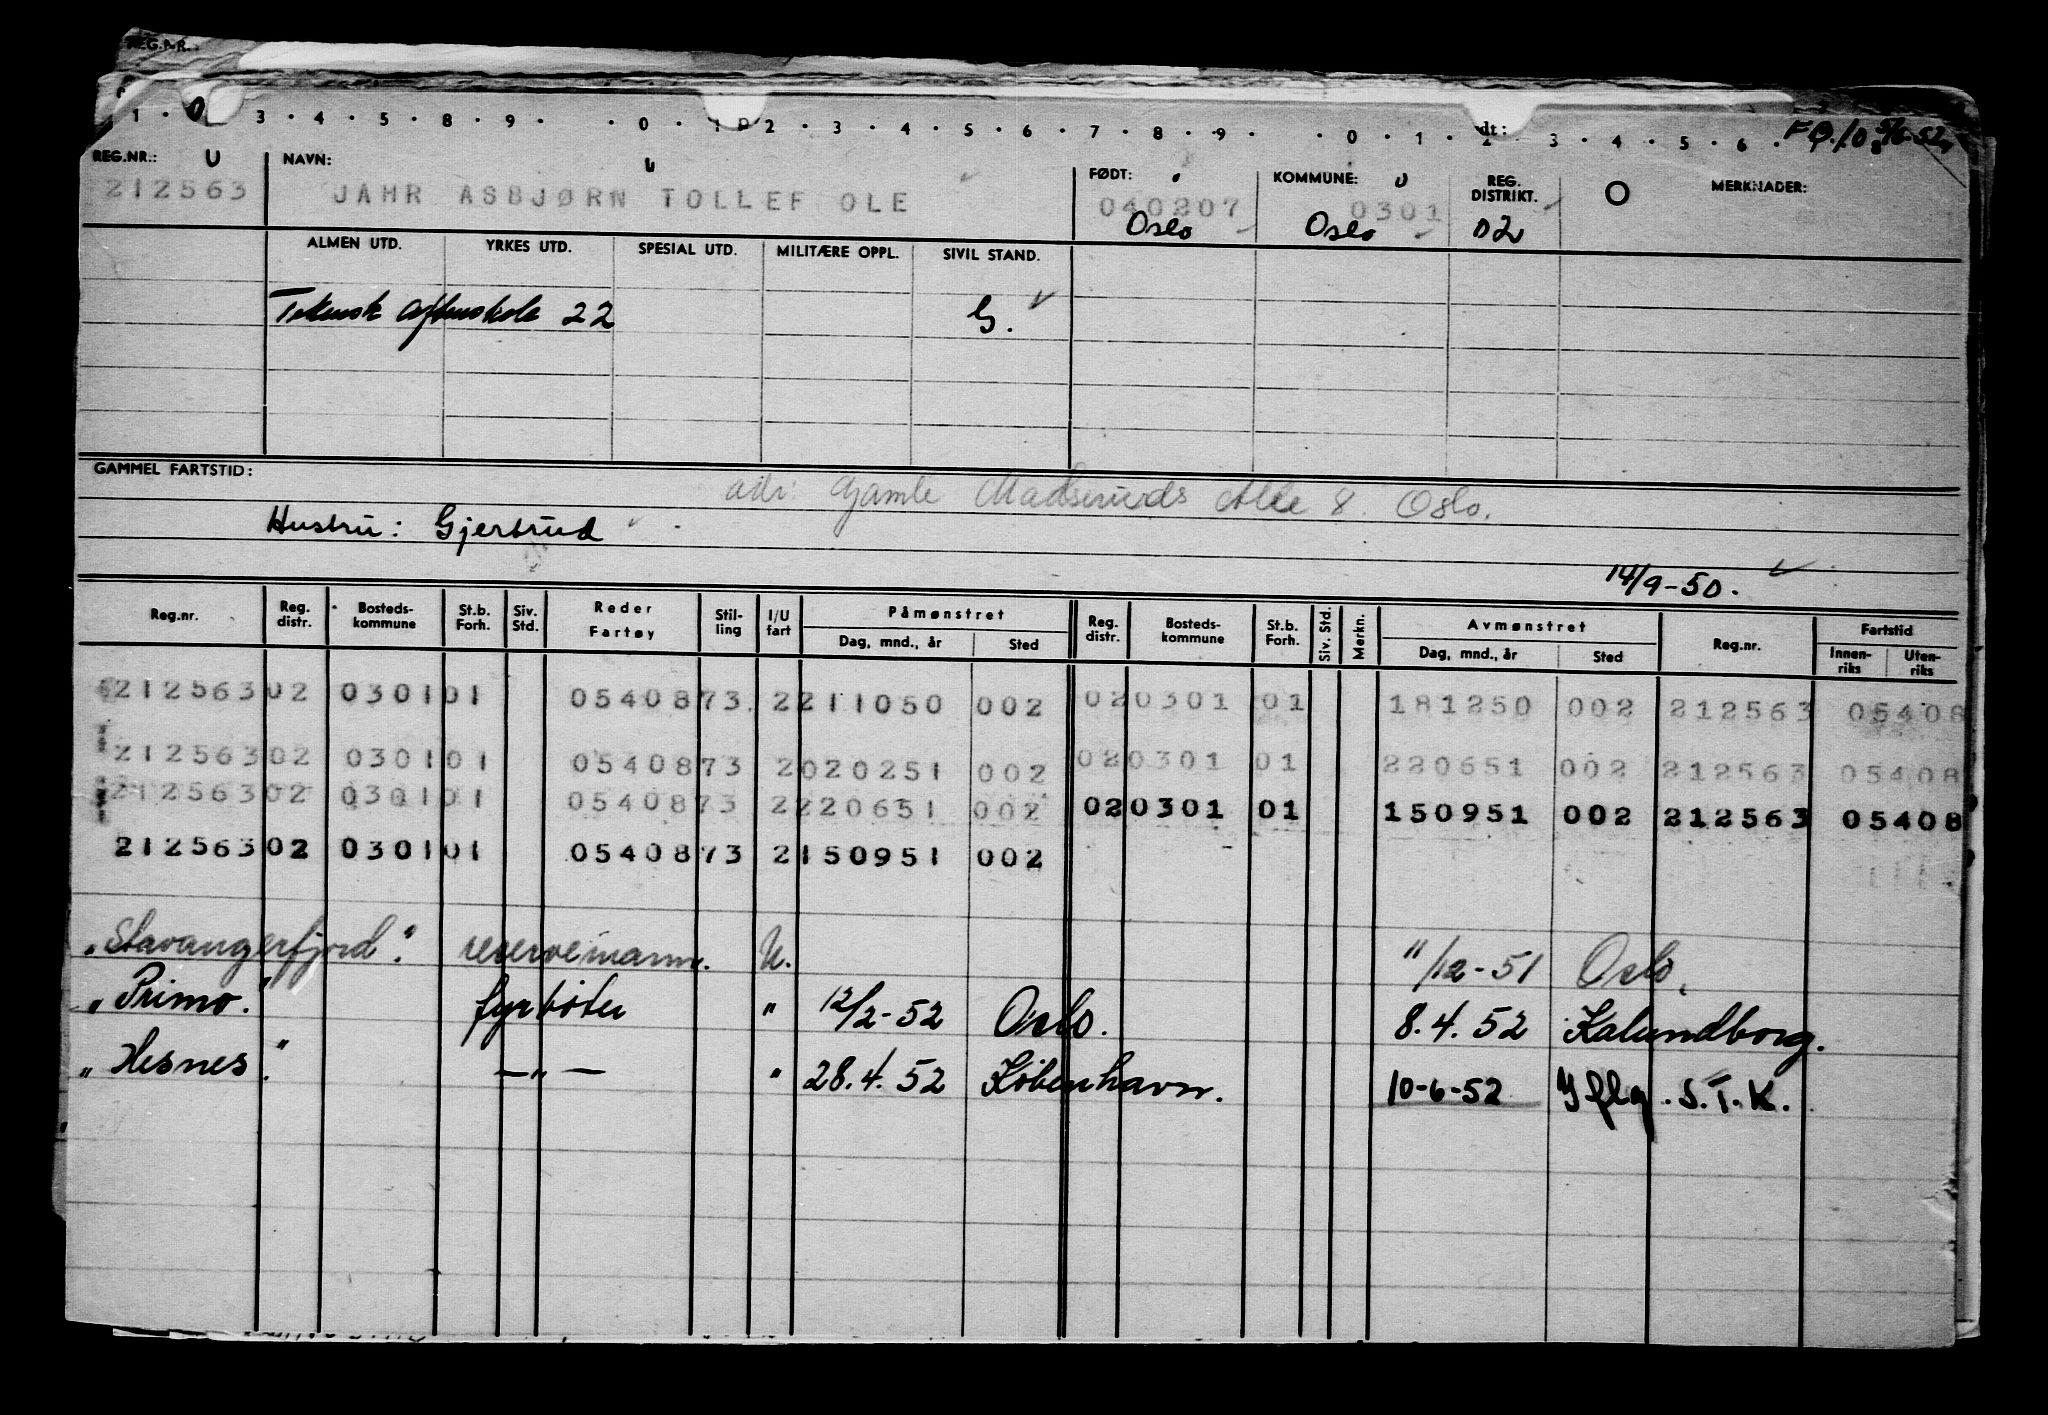 REG.NR.
1 · 0 3 · 4 · 5 · 8 · 9 · · 0 · 1 2 · 3 · 4 · 5 · 6 · 7 · 8 · 9 · · 0 · 1 · 2 · 3 · 4 · 5 · 6 ·
REG.NR.: U NAVN: FØDT: KOMMUNE: REG. DISTRIKT. O MERKNADER:
212563 JAHR ASBJØRN TOLLEF OLE 040207 0301
Oslo Oslo 02
ALMEN UTD. YRKES UTD. SPESIAL UTD. MILITÆRE OPPL. SIVIL STAND.
Teknisk aftenskole 22 G.
GAMMEL FARTSTID:
adr: Gamle Madseruds Alle 8. Oslo.
Hustru: Gjertrud
14/9-50.
Reg.nr. Reg. distr. Bosteds-kommune St.b. Forh. Siv. Std. Reder Fartøy Stil-ling I/U fart Påmønstret Dag, mnd., år Sted Reg. distr. Bosteds-kommune St.b. Forh. Siv. Std. Merkn. Avmønstret Dag, mnd., år Sted Reg.nr. Fartstid Innen-riks Uten-riks
212563 02 0301 01 05408 73 2 211050 002 02 0301 01 181250 002 212563 05408
212563 02 0301 01 05408 73 2 020251 002 02 0301 01 220651 002 212563 05408
212563 02 0301 01 05408 73 2 220651 002 02 0301 01 150951 002 212563 05408
212563 02 0301 01 05408 73 2 150951 002
"Stavangerfjord". reservemann. U. "/12-51 Oslo.
"Primo." fyrbøter " 12/2-52 Oslo. 8.4.52 Kalundborg.
"Hesnes". —"— " 28.4.52 København. 10-6-52 Iflg. S.T.K.